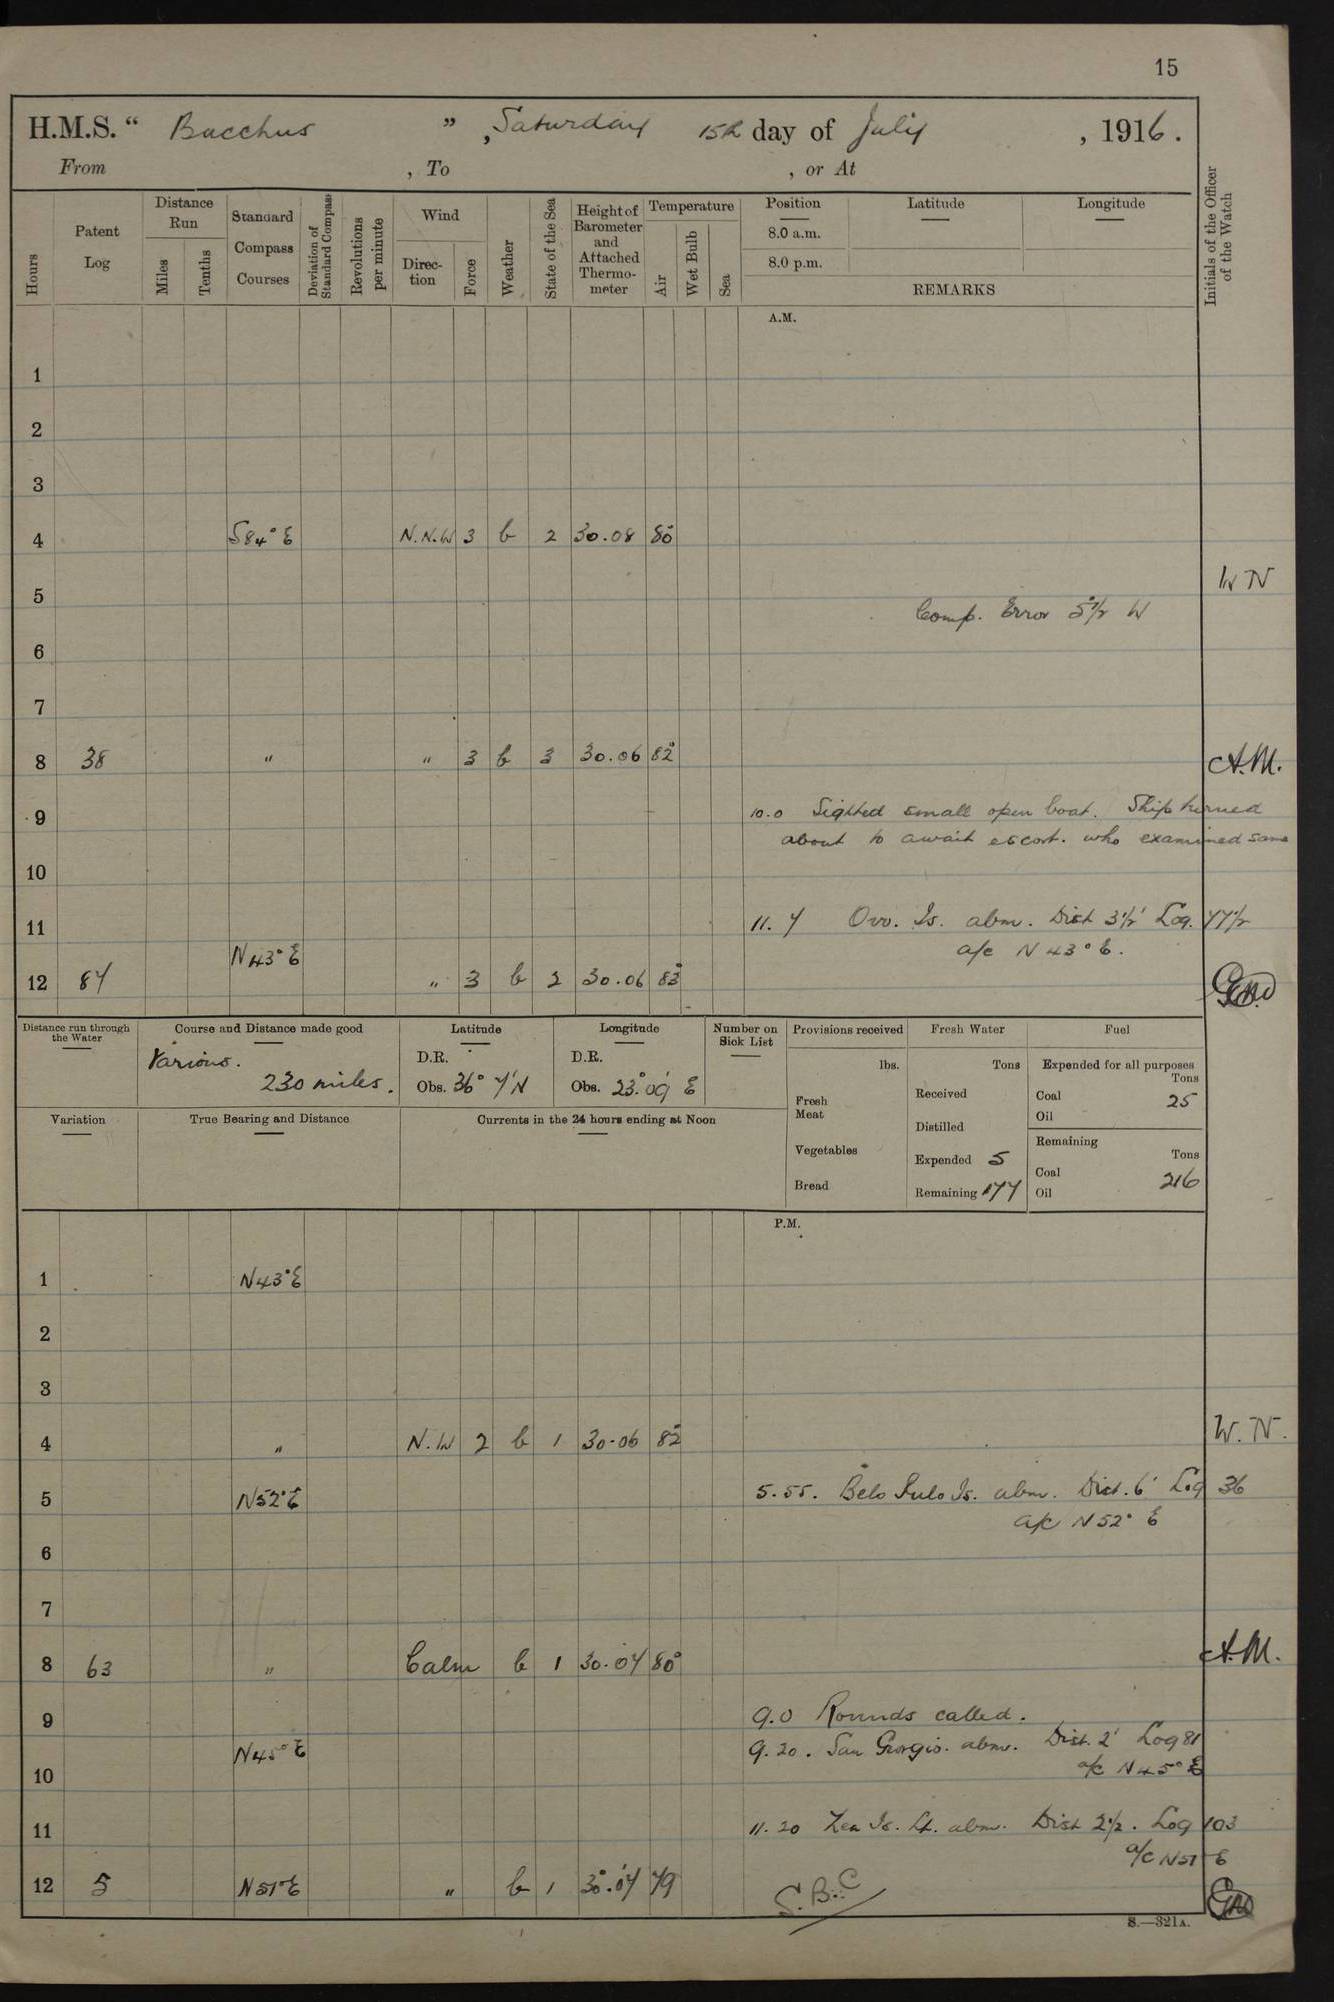 15
H.M.S. " Bacchus ", Saturday 15th day of July, 1916.
From , To , or At
Hours
Patent Log
Distance Run
Miles
Tenths
Standard Compass Courses
Deviation of Standard Compass
Revolutions per minute
Wind
Direction
Force
Weather
State of the Sea
Height of Barometer and Attached Thermometer
Temperature
Air
Wet Bulb
Sea
Position
Latitude
Longitude
8.0 a.m.
8.0 p.m.
REMARKS
Initials of the Officer of the Watch
A.M.
1
2
3
4 S84°E N.N.W 3 b 2 30.08 80°
W N
5
Comp. Error 5°1/2 W
6
7
8 38 " " 3 b 3 30.06 82° A.M.
9 10.0 Sighted small open boat. Ship turned
about to await escort. who examined same
10
11 11.7 Ovo. Is. abm. Dist 3 1/2' Log. 77 1/2
N43°E a/c N 43° E.
12 87 " 3 b 2 30.06 83°
Distance run through the Water
Course and Distance made good
Various.
230 miles.
Latitude
D.R.
Obs. 36° 7' N
Longitude
D.R.
Obs. 23° 09' E
Number on Sick List
Provisions received
lbs.
Fresh Meat
Vegetables
Bread
Fresh Water
Tons
Received
Distilled
Expended 5
Remaining 177
Fuel
Expended for all purposes
Tons
Coal 25
Oil
Remaining
Tons
Coal 216
Oil
Variation
True Bearing and Distance
Currents in the 24 hours ending at Noon
P.M.
1 N43°E
2
3
4 " N.W 2 b 1 30.06 82° W.N.
5 N52°E 5.55. Belo Pulo Is. abm. Dist. 6' Log 36
a/c N52° E
6
7
8 63 " Calm b 1 30.07 80° A.M.
9 9.0 Rounds called.
N45°E 9.20. San Giorgio. abm. Dist. 2' Log 81
a/c N45° E
10
11 11.20 Zea Is. Lt. abm. Dist 2 1/2. Log 103
a/c N51°E
12 5 N51°E " b 1 30.07 79
S.B.C
S.—321A.